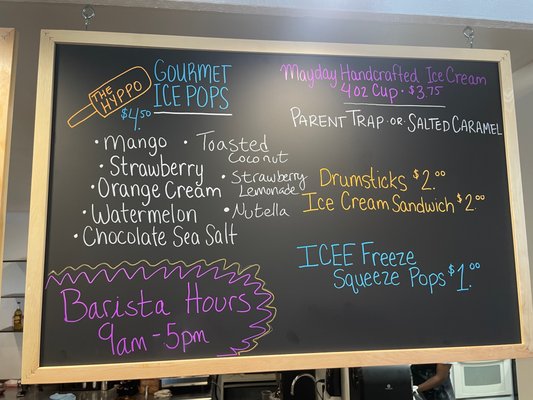 THE HYPPO
$4.50
GOURMET
ICE POPS
• Mango
• Strawberry
• Orange Cream
• Watermelon
• Chocolate Sea Salt
• Toasted
Coconut
• Strawberry
Lemonade
• Nutella
Barista Hours
9am-5pm
Mayday Handcrafted Ice Cream
4oz Cup • $3.75
PARENT TRAP • OR • SALTED CARAMEL
Drumsticks $2.00
Ice Cream Sandwich $2.00
ICEE Freeze
Squeeze Pops $1.00